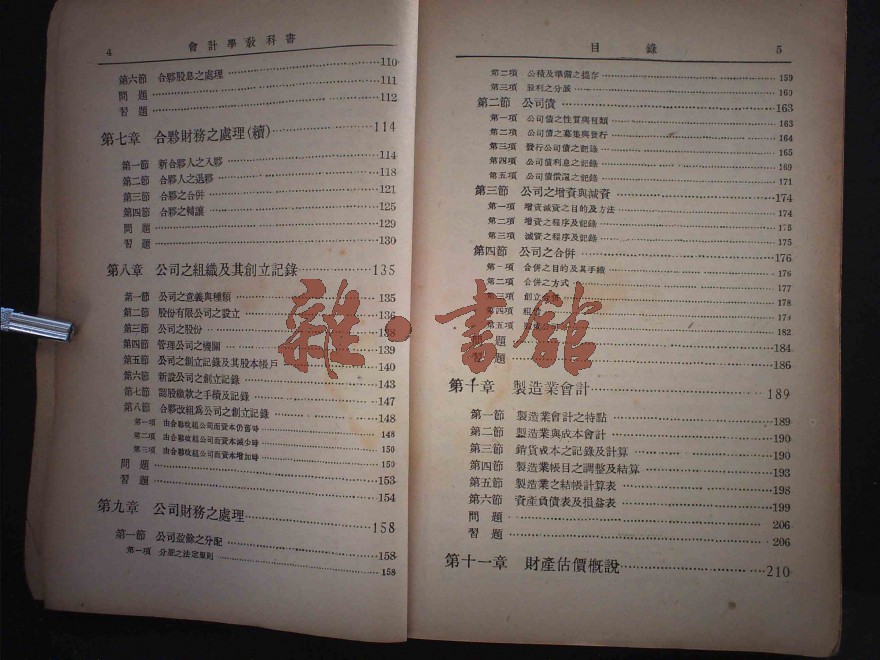 4 會計學教科書
第六節 合夥股息之處理 110
問題 111
習題 112
第七章 合夥財務之處理(續) 114
第一節 新合夥人之入夥 114
第二節 合夥人之退夥 118
第三節 合夥之合併 121
第四節 合夥之轉讓 125
問題 129
習題 130
第八章 公司之組織及其創立記錄 135
第一節 公司之意義與種類 135
第二節 股份有限公司之設立 136
第三節 公司之股份 138
第四節 管理公司之機關 139
第五節 公司之創立記錄及其股本帳戶 140
第六節 新設公司之創立記錄 143
第七節 認股繳款之手續及記錄 147
第八節 合夥改組爲公司之創立記錄 148
第一項 由合夥改組公司而資本仍舊時 148
第二項 由合夥改組公司而資本減少時 150
第三項 由合夥改組公司而資本增加時 150
問題 153
習題 154
第九章 公司財務之處理 158
第一節 公司盈餘之分配 158
第一項 分派之法定原則 158
目錄 5
第二項 公積及準備之提存 159
第三項 股利之分派 160
第二節 公司債 163
第一項 公司債之性質與種類 163
第二項 公司債之募集與發行 164
第三項 發行公司債之記錄 165
第四項 公司債利息之記錄 169
第五項 公司債償還之記錄 171
第三節 公司之增資與減資 174
第一項 增資減資之目的及方法 174
第二項 增資之程序及記錄 175
第三項 減資之程序及記錄 175
第四節 公司之合併 176
第一項 合併之目的及其手續 176
第二項 合併之方式 177
第三項 創立合併 178
第四項 租借
第五項 182
問題 184
習題 186
第十章 製造業會計 189
第一節 製造業會計之特點 189
第二節 製造業與成本會計 190
第三節 銷貨成本之記錄及計算 190
第四節 製造業帳目之調整及結算 193
第五節 製造業之結帳計算表 198
第六節 資產負債表及損益表 199
問題 206
習題 206
第十一章 財產估價概說 210
雜·書館